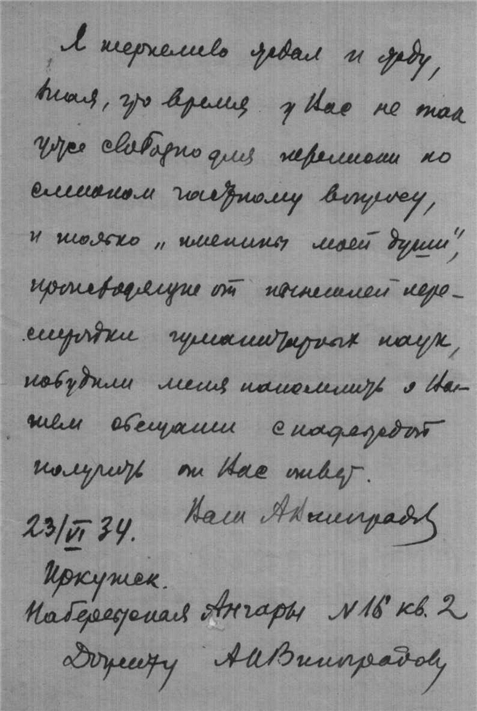 Я терпеливо ждал и жду,
зная, что время у Вас не так
уже свободно для переписки по
слишком частному вопросу,
и только „именины моей души",
происходящие от нынешней пере-
стройки гуманитарных наук,
побудили меня напомнить о Ва-
шем обещании с надеждой
получить от Вас ответ.
Ваш А Виноградов
23/VI 34.
Иркутск.
Набережная Ангары N 16 кв. 2
Доценту А Н Виноградову